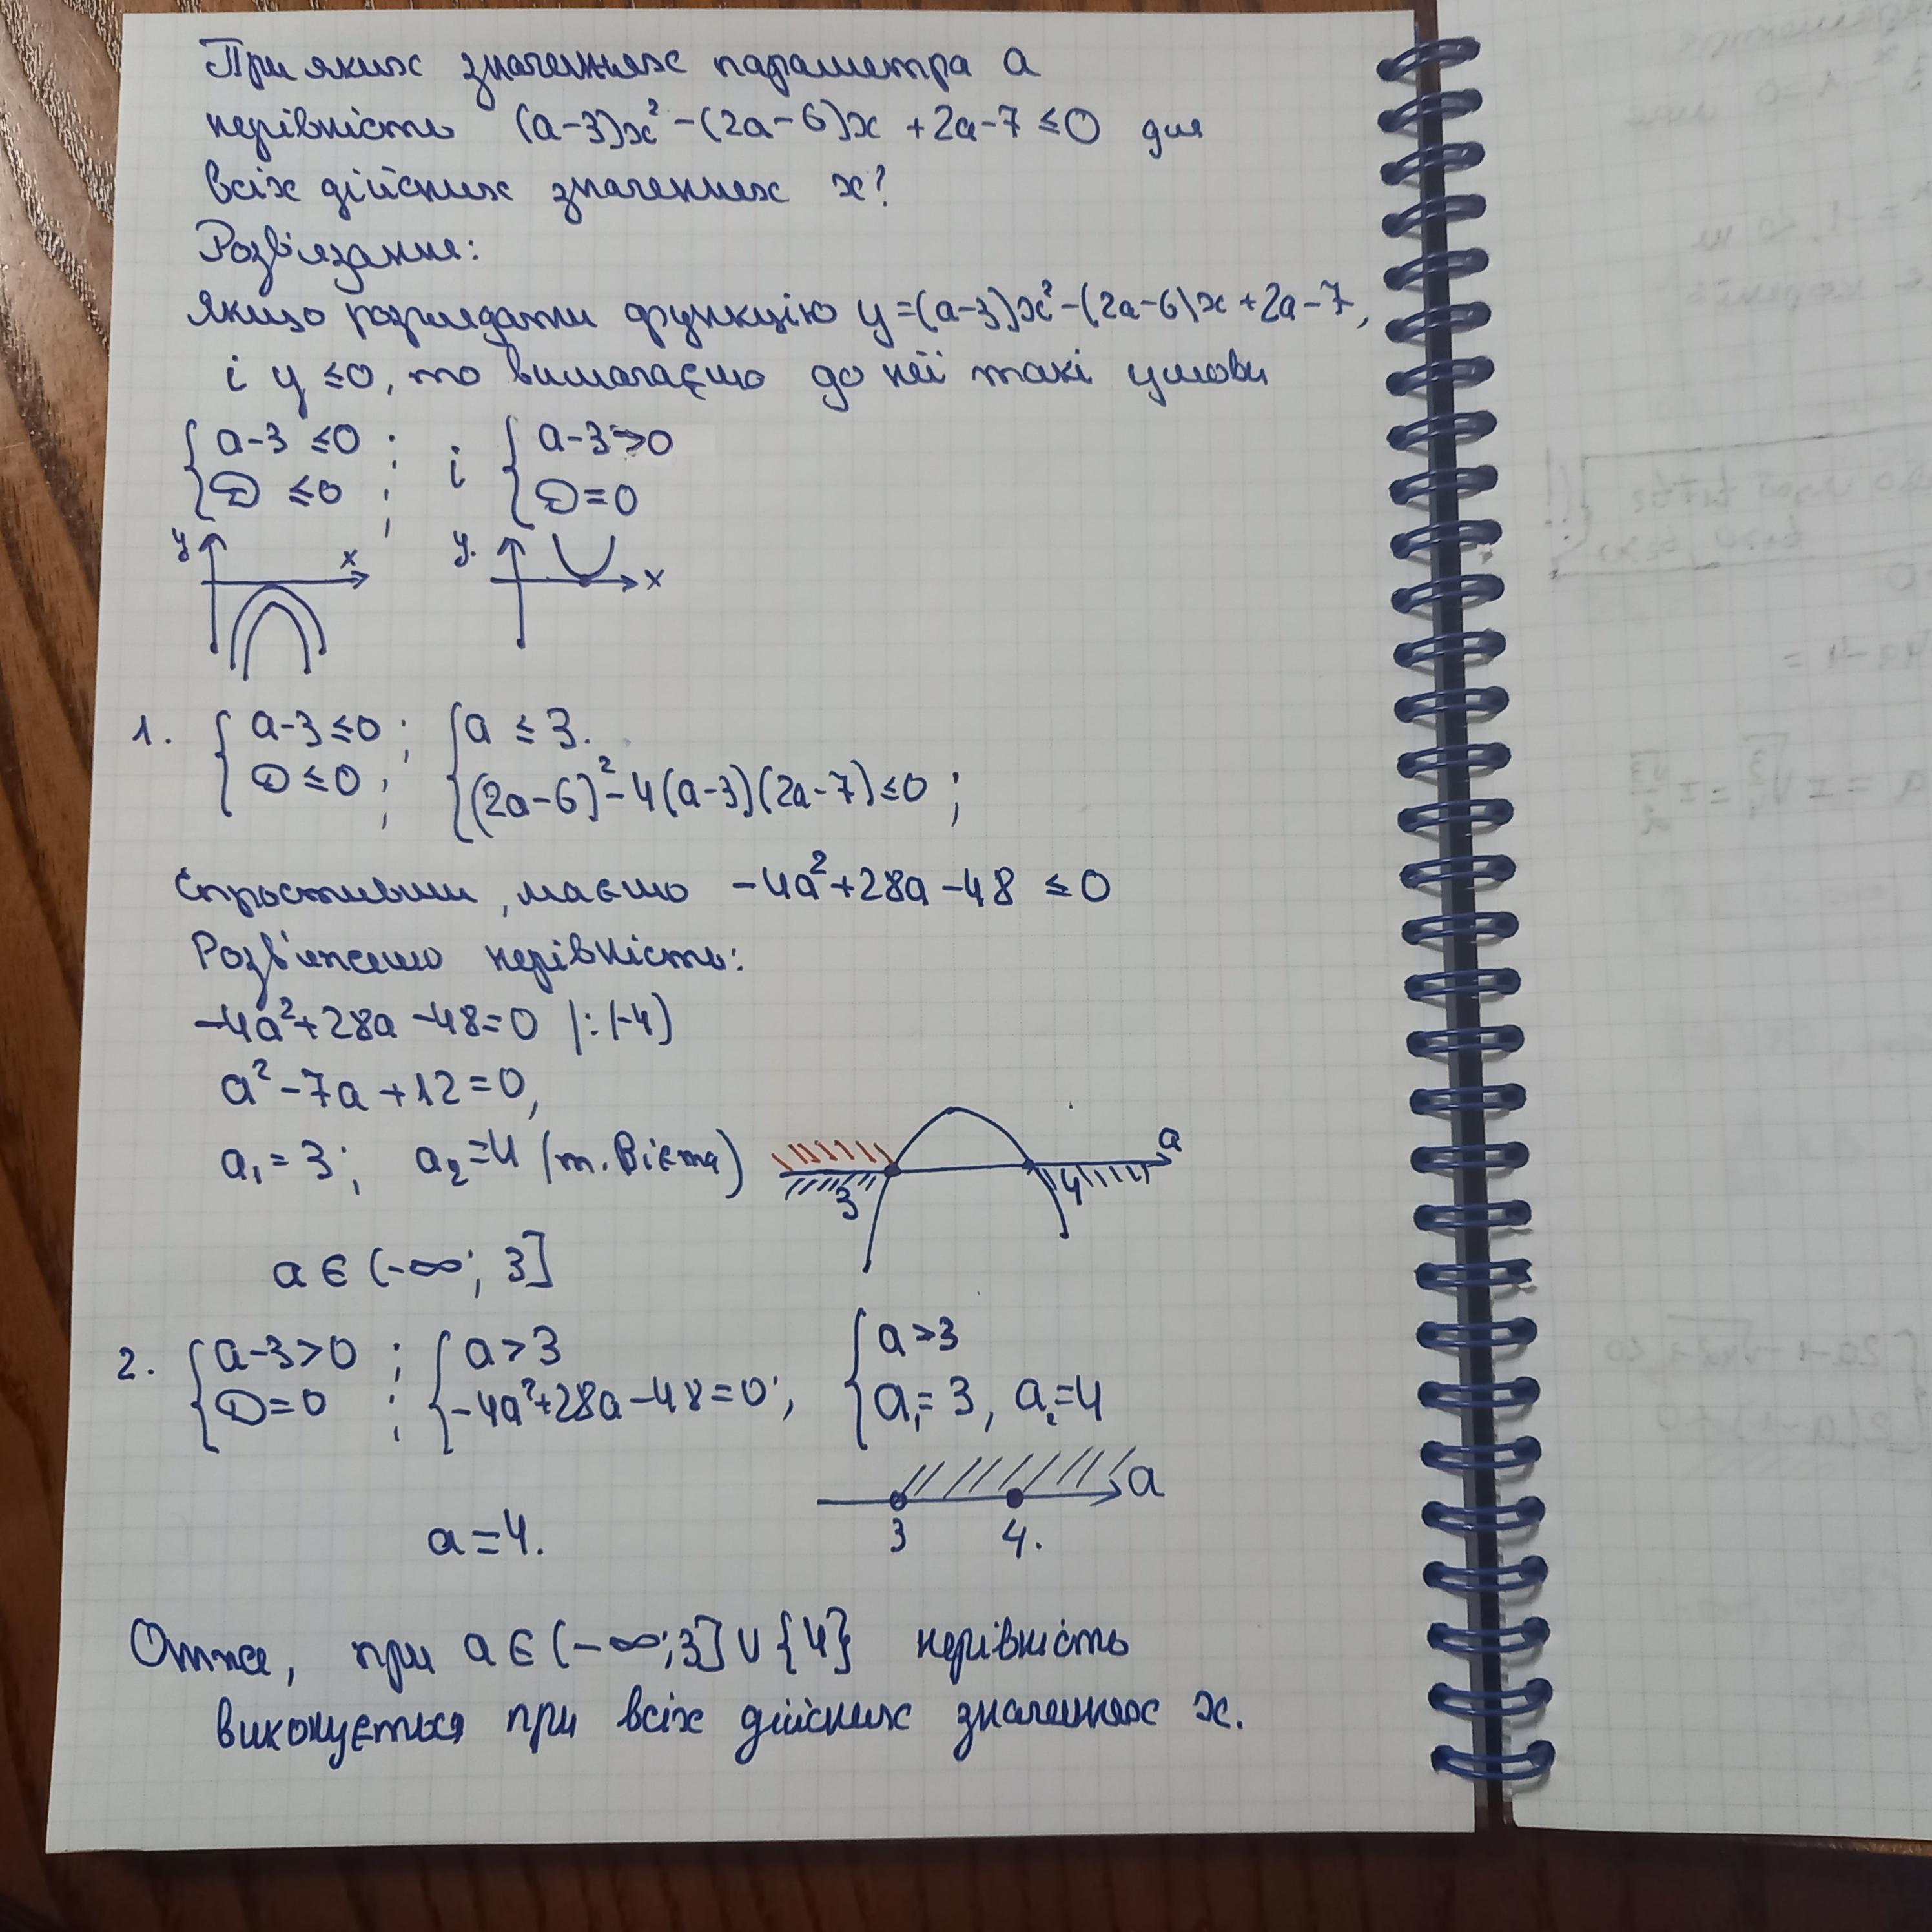 При яких значеннях параметра a
нерівність (a-3)x² - (2a-6)x + 2a-7 ≤ 0 для
всіх дійсних значеннях x?
Розв'язання:
Якщо розглядати функцію y = (a-3)x² - (2a-6)x + 2a-7,
і y ≤ 0, то вимагаємо до неї такі умови
{ a-3 ≤ 0 ; і { a-3 > 0
{ D ≤ 0 ; { D = 0
y x y. x
1. { a-3 ≤ 0 ; { a ≤ 3.
{ D ≤ 0 ; { (2a-6)² - 4(a-3)(2a-7) ≤ 0 ;
Спростивши, маємо -4a² + 28a - 48 ≤ 0
Розв'яжемо нерівність:
-4a² + 28a - 48 = 0 |:(-4)
a² - 7a + 12 = 0,
a₁ = 3; a₂ = 4 (т. Вієта) a
3 4
a ∈ (-∞; 3]
2. { a-3 > 0 ; { a > 3 { a > 3
{ D = 0 ; { -4a² + 28a - 48 = 0; { a₁ = 3, a₂ = 4
a
a = 4. 3 4.
Отже, при a ∈ (-∞; 3] ∪ {4} нерівність
виконується при всіх дійсних значеннях x.